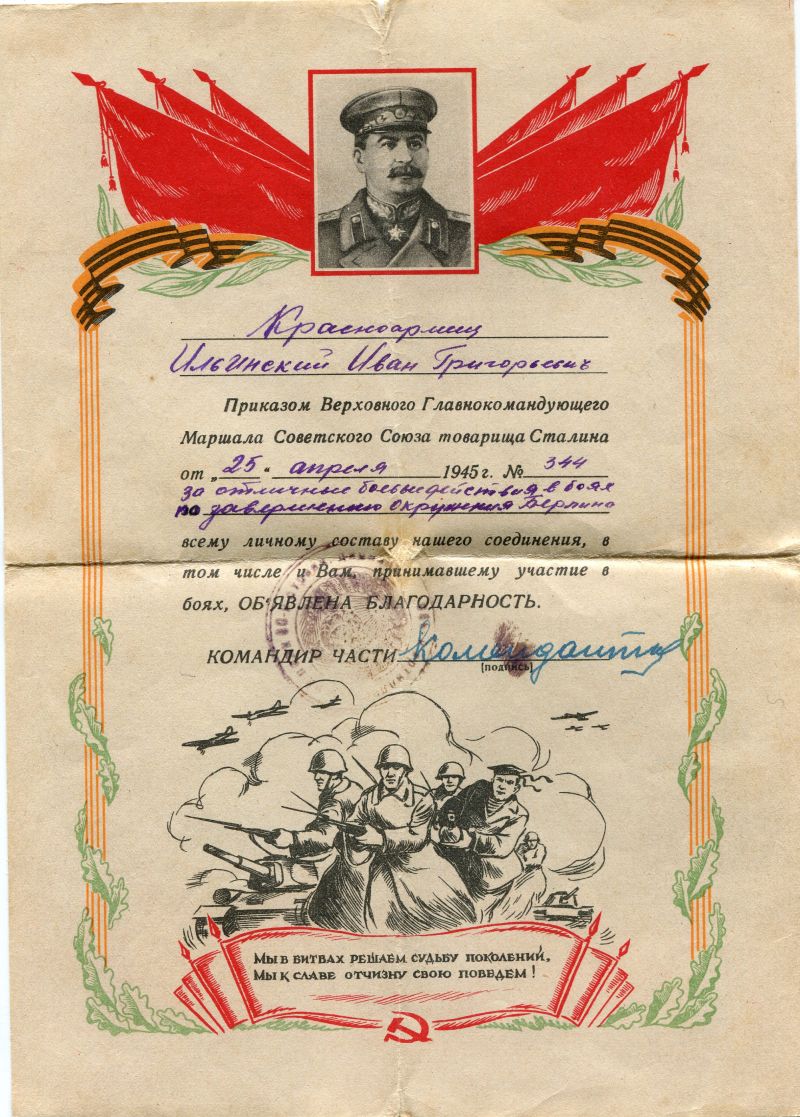 Красноармеец
Ильинский Иван Григорьевич
Приказом Верховного Главнокомандующего
Маршала Советского Союза товарища Сталина
от „25“ апреля 1945 г. № 344
за отличные боевые действия в боях
по завершению окружения Берлина
всему личному составу нашего соединения, в
том числе и Вам, принимавшему участие в
боях, ОБ'ЯВЛЕНА БЛАГОДАРНОСТЬ.
КОМАНДИР ЧАСТИ
(подпись)
МЫ В БИТВАХ РЕШАЕМ СУДЬБУ ПОКОЛЕНИЙ,
МЫ К СЛАВЕ ОТЧИЗНУ СВОЮ ПОВЕДЕМ!